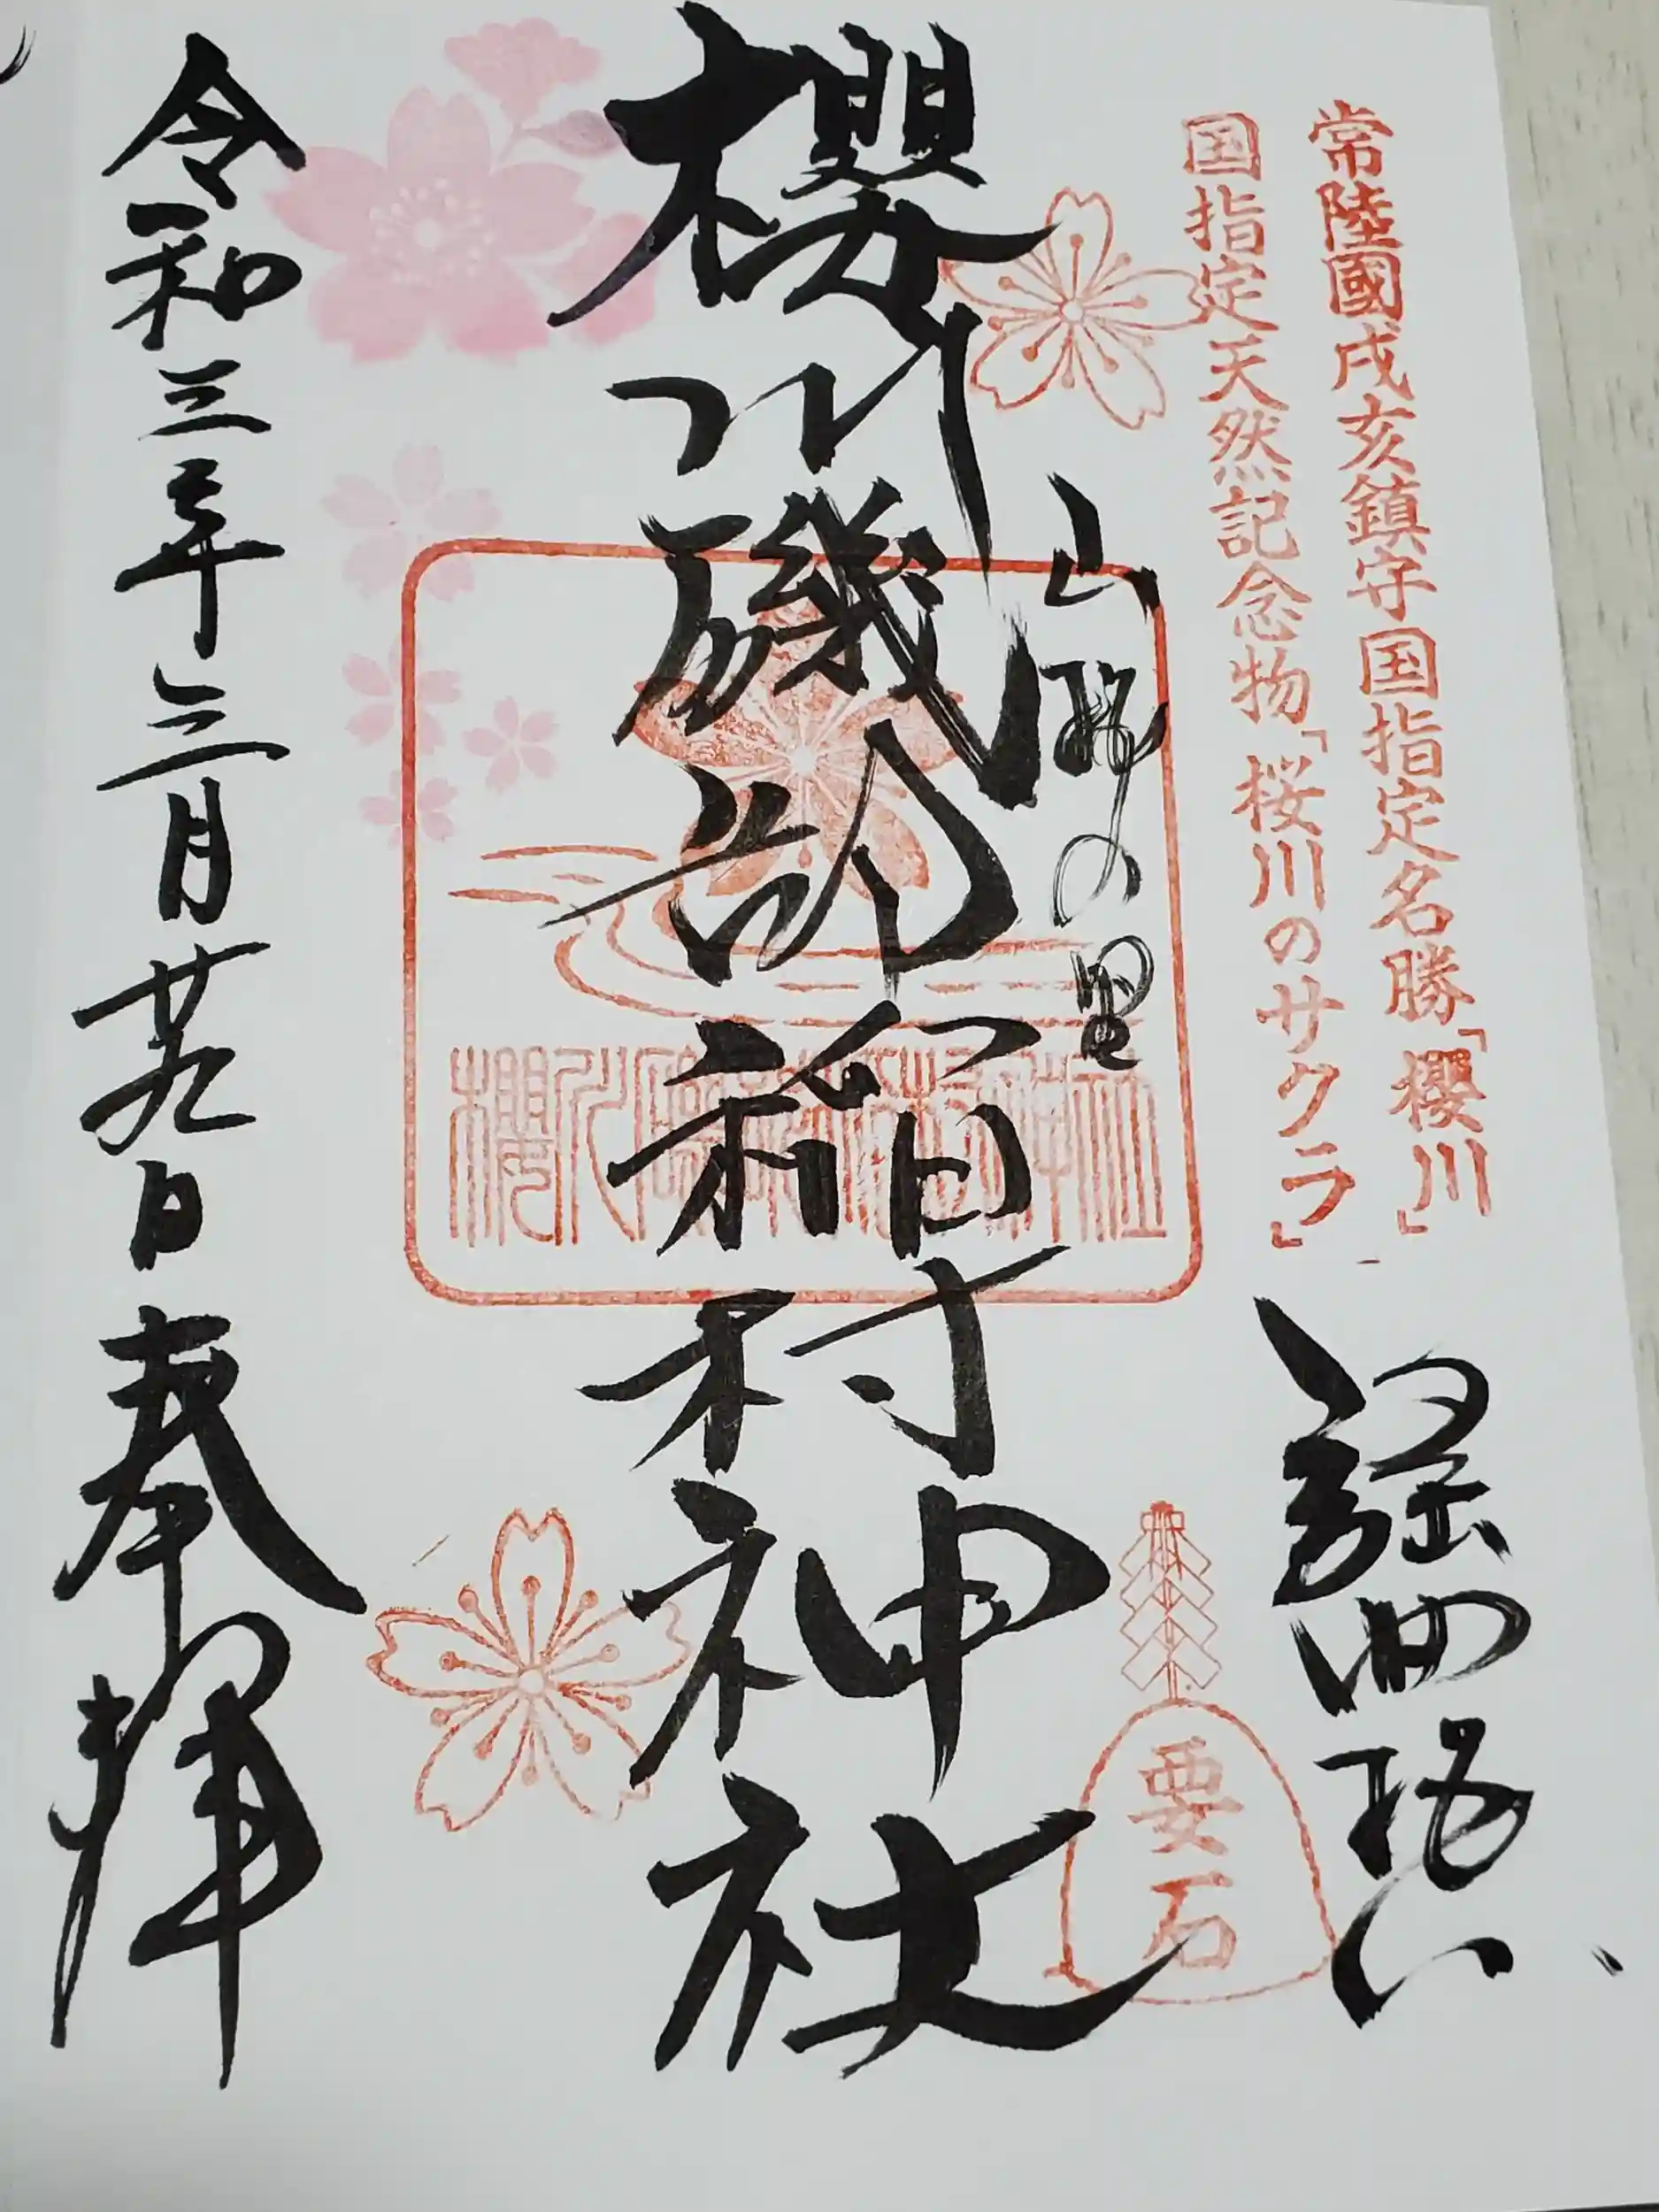 常陸國戌亥鎮守国指定名勝「櫻川」
国指定天然記念物「桜川のサクラ」
謡曲
山桜の里
要石
櫻川磯部稲村神社
櫻川磯部稲村神社
令和三年三月廿九日奉拝